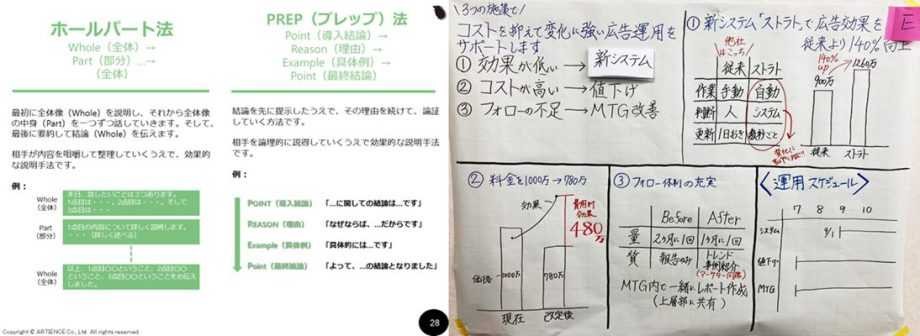 ホールパート法
Whole（全体）→
Part（部分）…→
（全体）
最初に全体像（Whole）を説明し、それから全体像
の中身（Part）を一つずつ話していきます。そして、
最後に要約して結論（Whole）を伝えます。
相手が内容を咀嚼して整理していくうえで、効果的
な説明手法です。
例：
Whole
（全体）
本日、話したいことは3つあります。
1点目は・・・、2点目は・・・、そして
3点目は・・・
Part
（部分）
1点目の内容について詳しく説明します。
・・・（詳しく述べる）
Whole
（全体）
以上、1点目〇〇ということ、2点目〇〇
ということ、3点目〇〇ということをお伝え
しました。
PREP（プレップ）法
Point（導入結論）→
Reason（理由）→
Example（具体例）→
Point（最終結論）
結論を先に提示したうえで、その理由を続けて、論証
していく方法です。
相手を論理的に説得していくうえで効果的な説明手
法です。
例：
POINT（導入結論） 「…に関しての結論は…です」
REASON（理由） 「なぜならば、…だからです」
Example（具体例） 「具体的には…です」
Point（最終結論） 「よって、…の結論となりました」
Copyright © ARTIENCE Co., Ltd. All rights reserved.
28
3つの施策で!
コストを抑えて変化に強い広告運用を
サポートします
① 効果が低い → 新システム
② コストが高い → 値下げ
③ フォローの不足 → MTG改善
E
① 新システム「ストラト」で広告効果を
従来より140%向上
他社
はこっち
従来 ストラト
作業 手動 自動
判断 人 システム
更新 1日おき 数秒ごと
140%
up
900万
1260万
従来 ストラト
② 料金を1000万→780万
効果
費用対
効果
480
万
価格
1000万
780万
現在 改定後
③ フォロー体制の充実
Before After
量 2ヶ月に1回 1ヶ月に1回
質 報告のみ トレンド
事例紹介
MTG内で一緒にレポート作成
(上層部に共有)
〈運用スケジュール〉
7 8 9 10
システム
9/1
値下げ
MTG